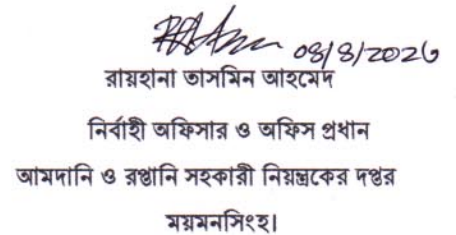 08/8/2026
রায়হানা তাসমিন আহমেদ
নির্বাহী অফিসার ও অফিস প্রধান
আমদানি ও রপ্তানি সহকারী নিয়ন্ত্রকের দপ্তর
ময়মনসিংহ।